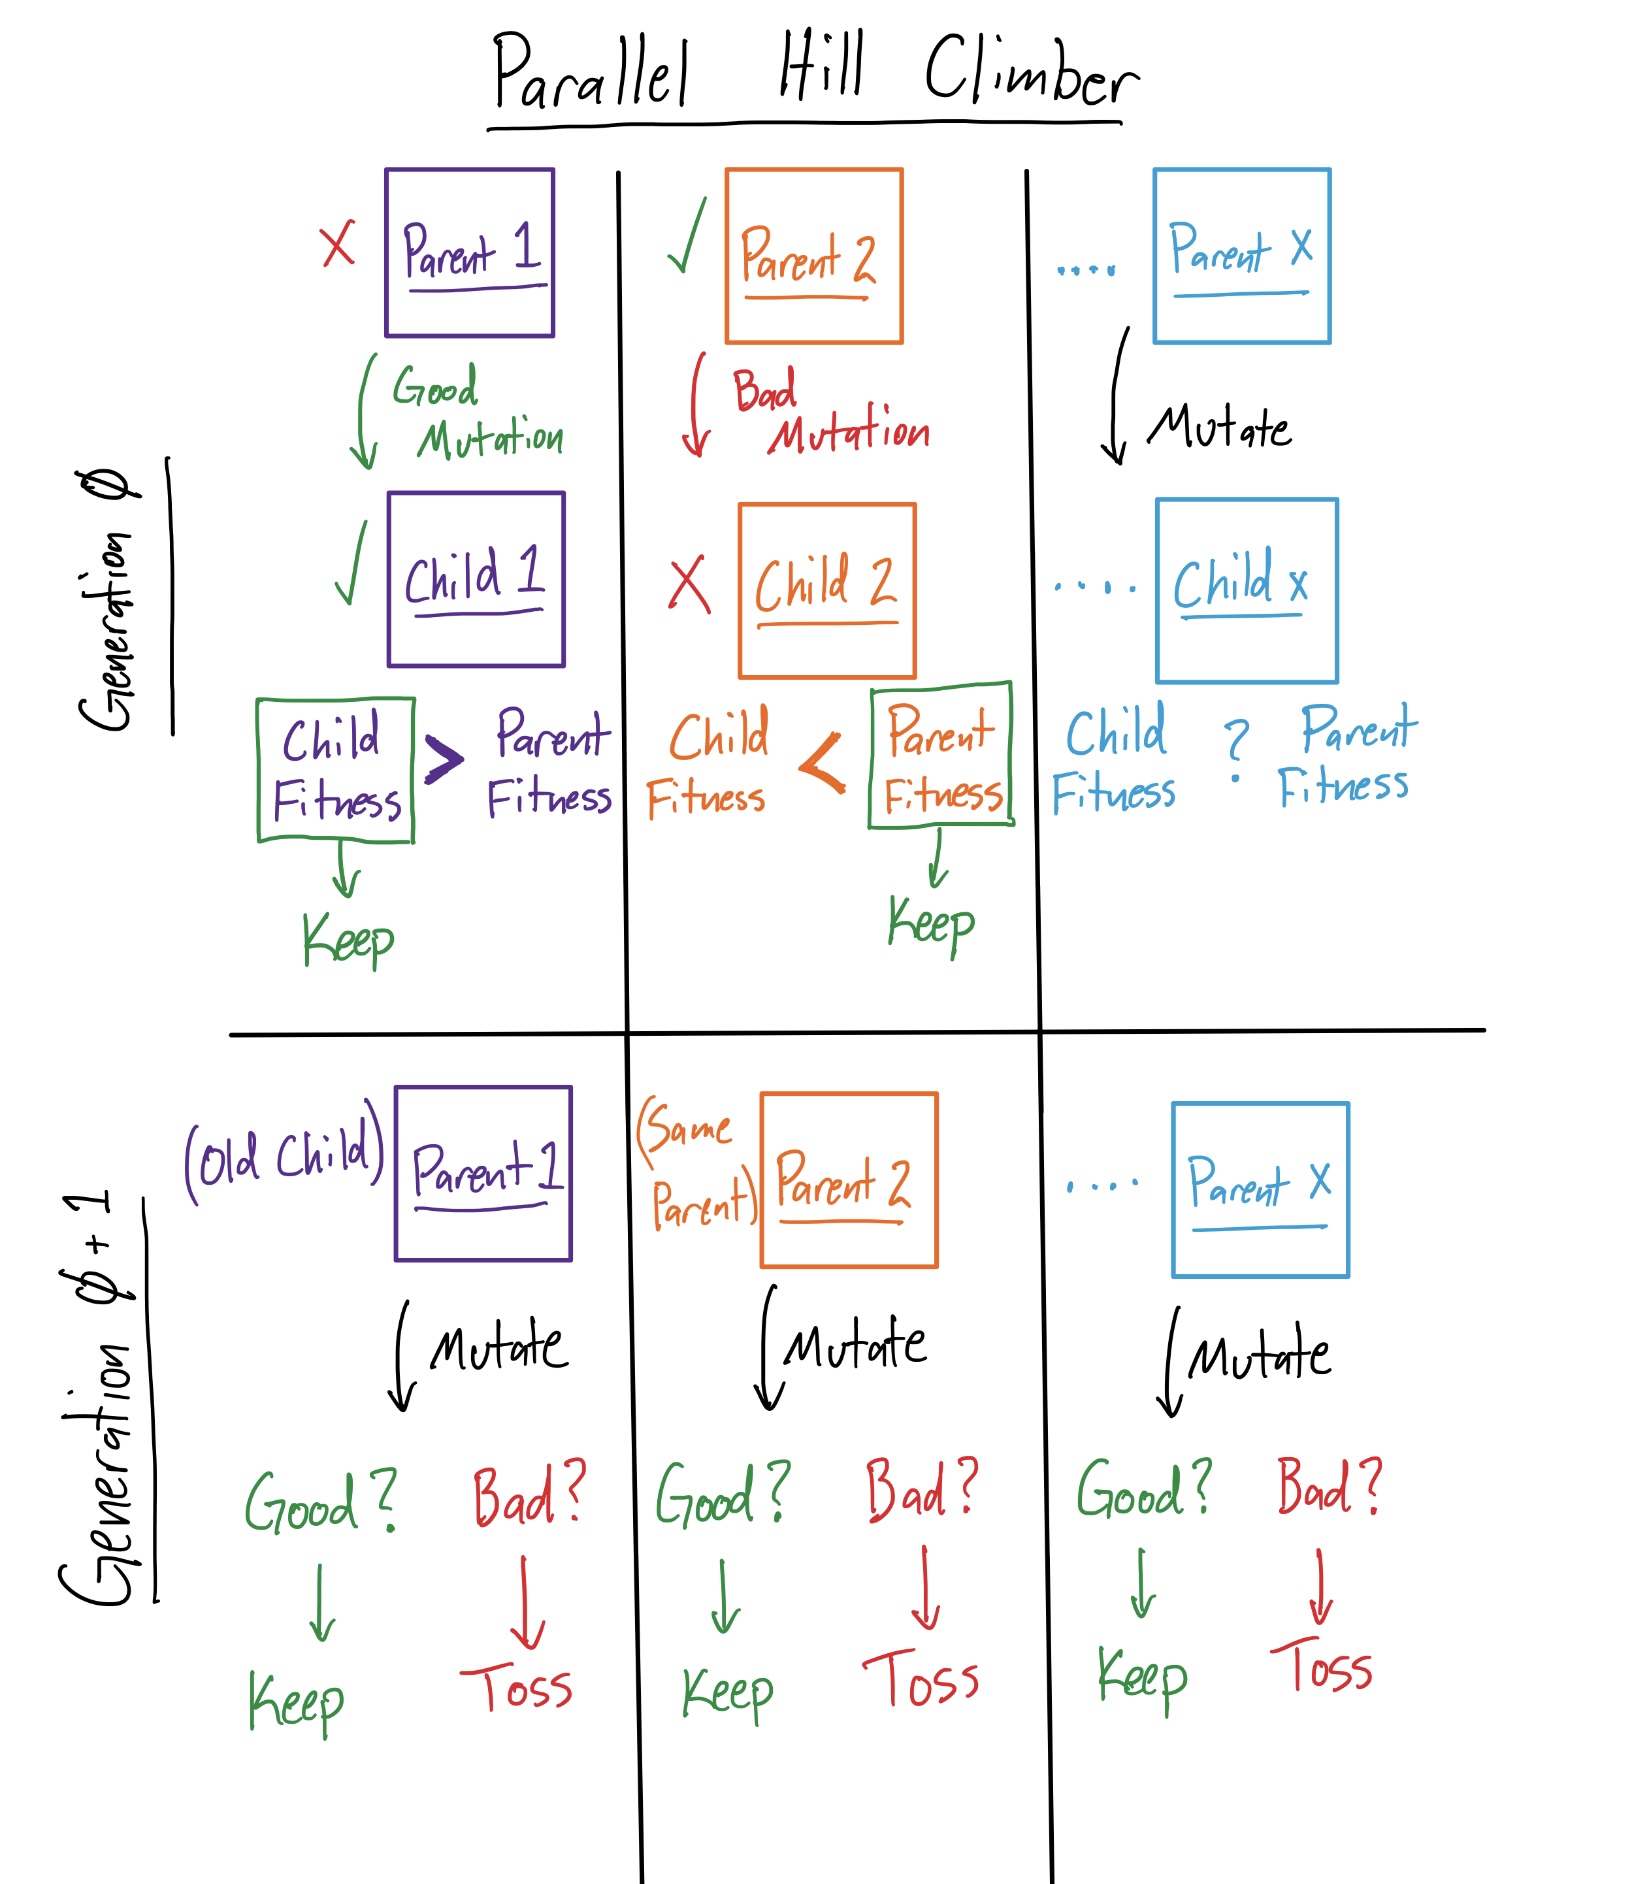 Parallel Hill Climber
Generation Ø
X
Parent 1
Good
Mutation
✓
Child 1
Child
Fitness
>
Parent
Fitness
Keep
✓
Parent 2
Bad
Mutation
X
Child 2
Child
Fitness
<
Parent
Fitness
Keep
....
Parent X
Mutate
....
Child x
Child
Fitness
?
Parent
Fitness
Generation Ø + 1
(Old Child)
Parent 1
Mutate
Good?
Bad?
Keep
Toss
(Same
Parent)
Parent 2
Mutate
Good?
Bad?
Keep
Toss
....
Parent X
Mutate
Good?
Bad?
Keep
Toss